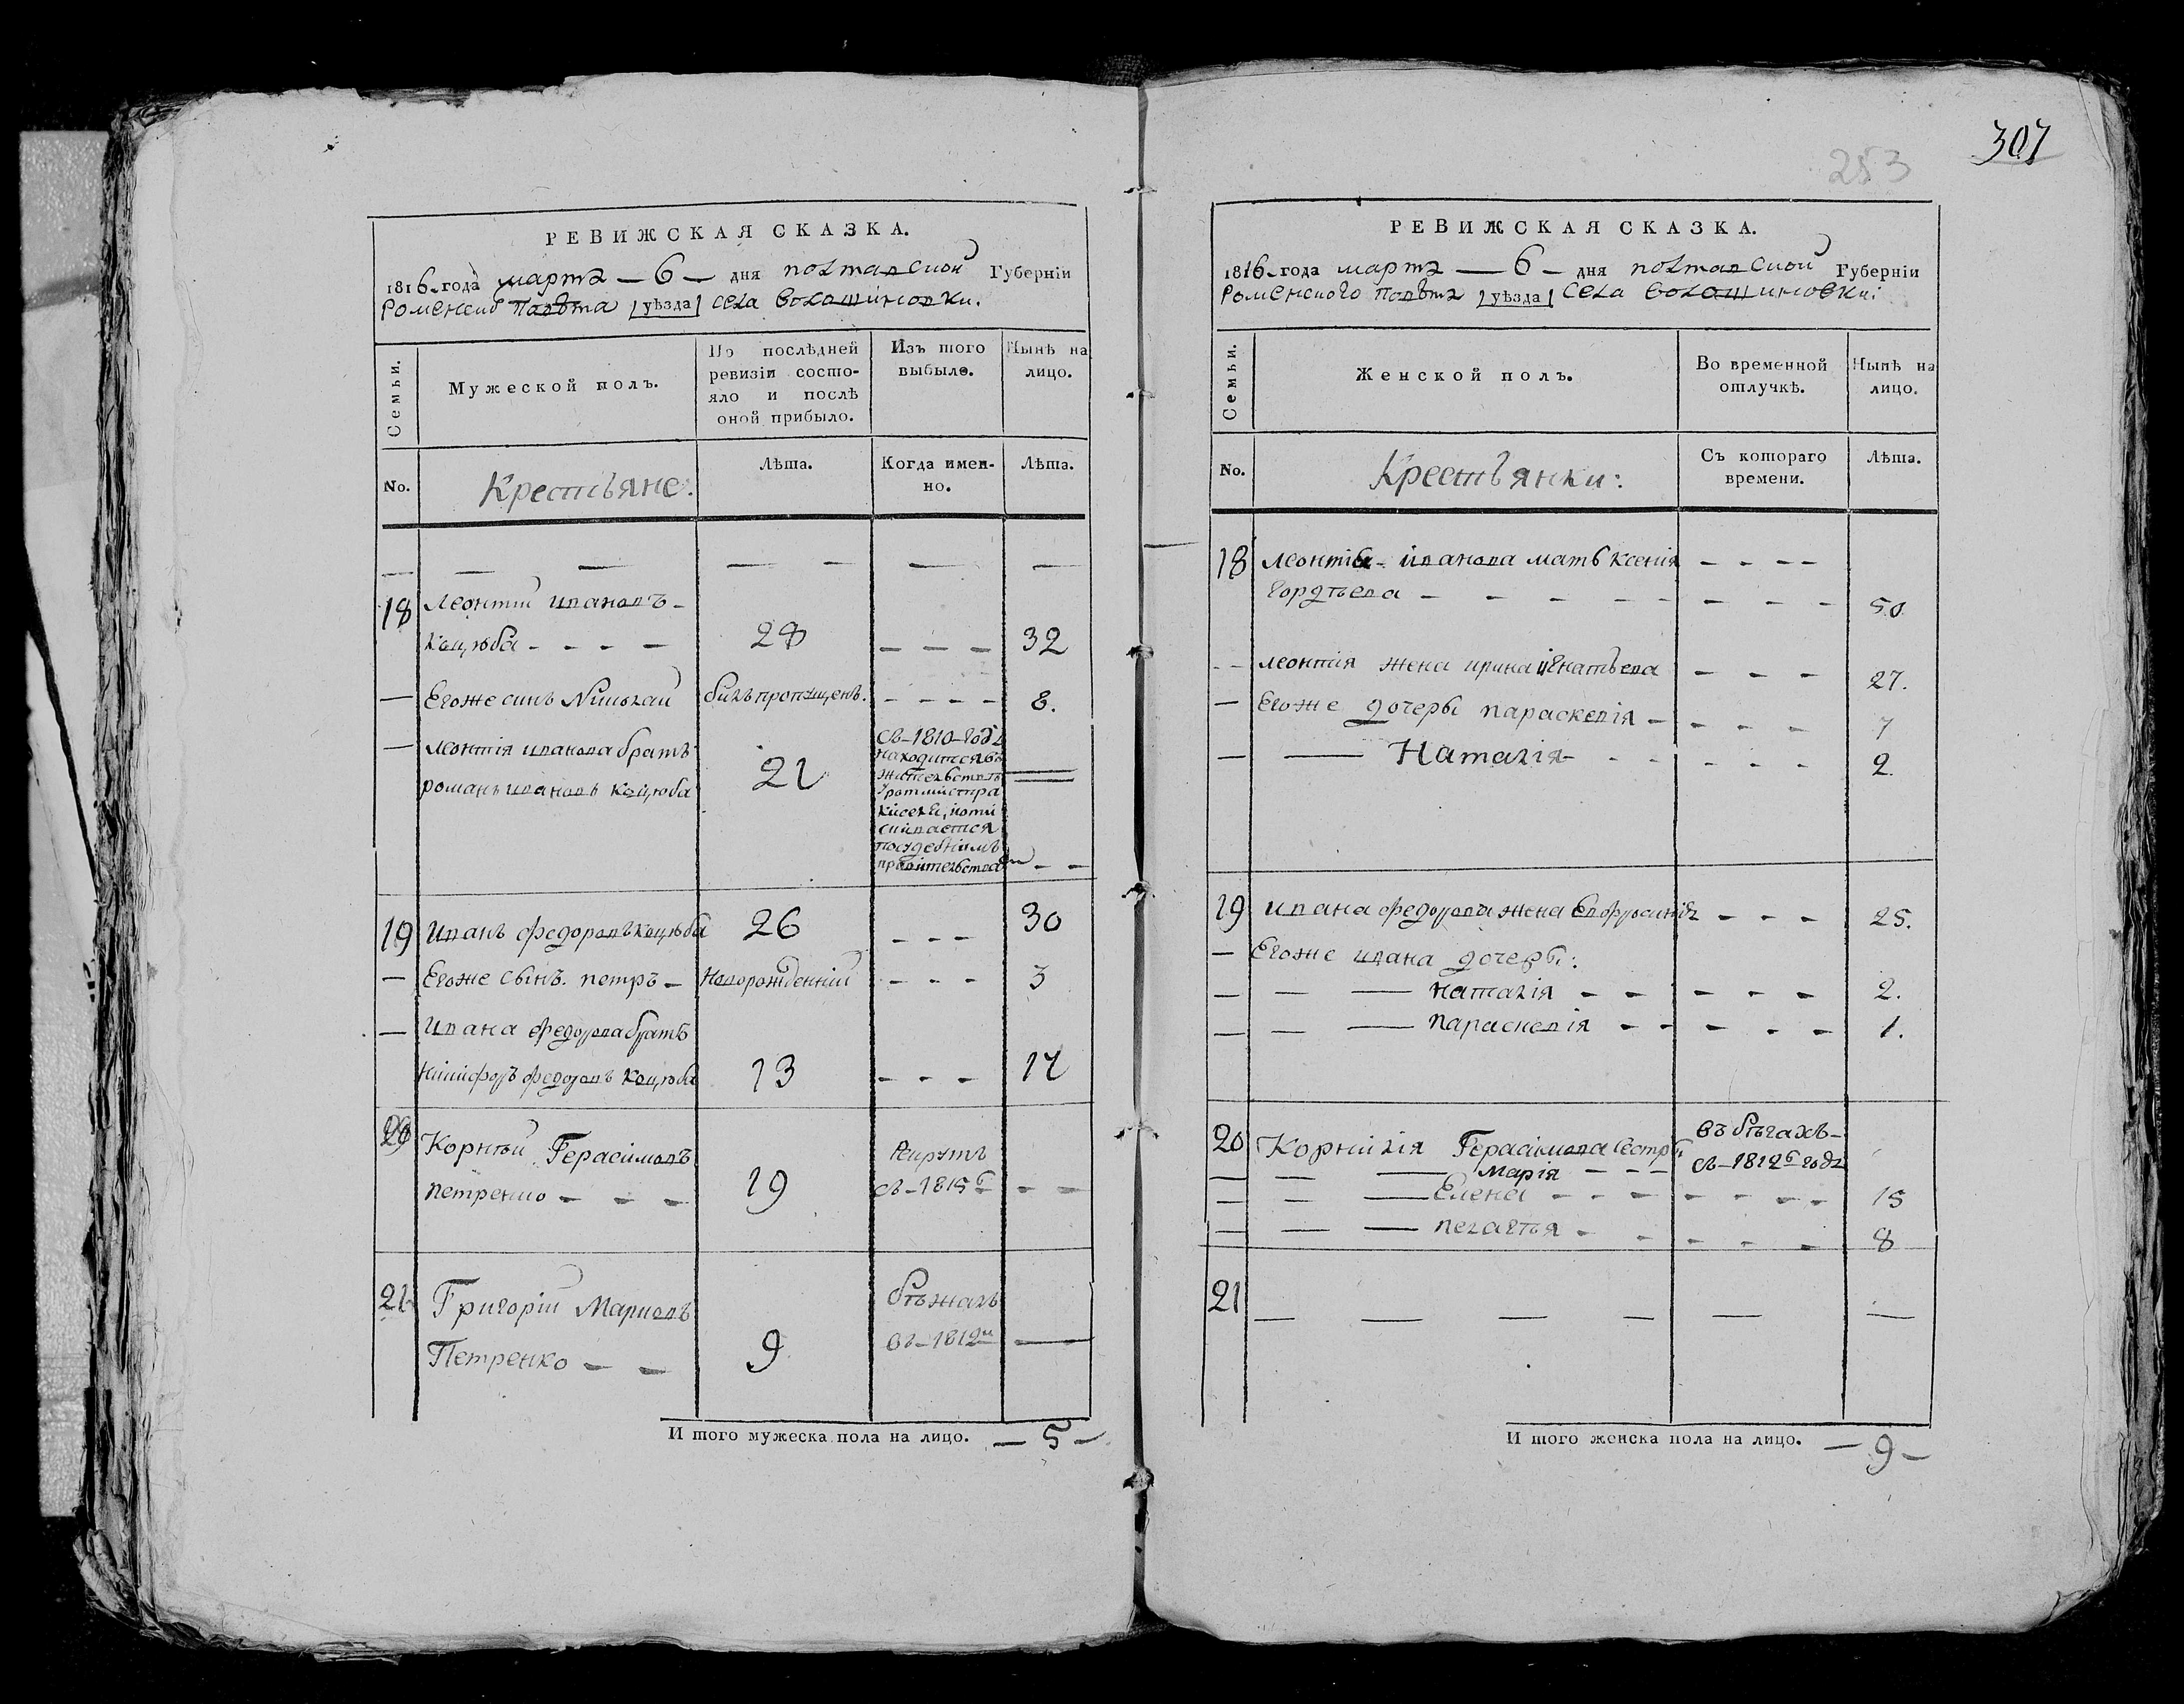 РЕВИЖСКАЯ СКАЗКА.
1816 года марта — 6 — дня полтавской Губерніи
роменско повѣта [уѣзда] села волошиновки.
Семьи.
Мужеской полъ.
По послѣдней ревизіи состояло и послѣ оной прибыло.
Изъ того выбыло.
Нынѣ на лицо.
No.
Крестьяне.
Лѣта.
Когда именно.
Лѣта.
18 Леонтій ивановъ -
Коцюба - - - - 28 - - - 32
— Егоже синъ Николай билъ пропущенъ. - - - - 8.
— леонтія иванова братъ
романъ ивановъ коцюба 21
съ - 1810 - года
находится въ
жителъствѣ
у ротмистра
киселя,
посудебнимъ
19 Иванъ федоровъ коцюба 26 - - - 30
— Егоже сынъ. петръ - новорожденній - - - 3
— Ивана федорова братъ
никифоръ федоровъ коцюба 13 - - - 17
20 Корнѣй Герасимовъ
петренко - - - 19
рекрутъ
съ - 1815г - -
21 Григорій Марковъ
Петренко - - 9
бѣжалъ
въ - 1812м —
И того мужеска пола на лицо. — 5 —
307
253
РЕВИЖСКАЯ СКАЗКА.
1816 года марта — 6 — дня полтавской Губерніи
роменского повѣта [уѣзда] села волошиновки:
Семьи.
Женской полъ.
Во временной отлучкѣ.
Нынѣ на лицо.
No.
Крестьянки:
Съ котораго времени.
Лѣта.
18 леонтія иванова мать ксенія - - - -
гордѣева - - - - - - - - 50
-- леонтія жена ирина игнатьева - - - 27.
— Егоже дочери параскевія - - - - 7
— — Наталія - - - - - - 2.
19 ивана федорова жена Евфросинія - - - 25.
— Егоже ивана дочери:
— — — наталія - - - - - - 2.
— — — параскевія - - - - - 1.
20 Корнилія Герасимова сестри
въ бѣгахъ -
— — Марія - - - съ - 1812г года
— — — Елена - - - - - - - - 15
— — — пелагѣя - - - - - 8
21 — — — — — —
И того женска пола на лицо. — 9 —